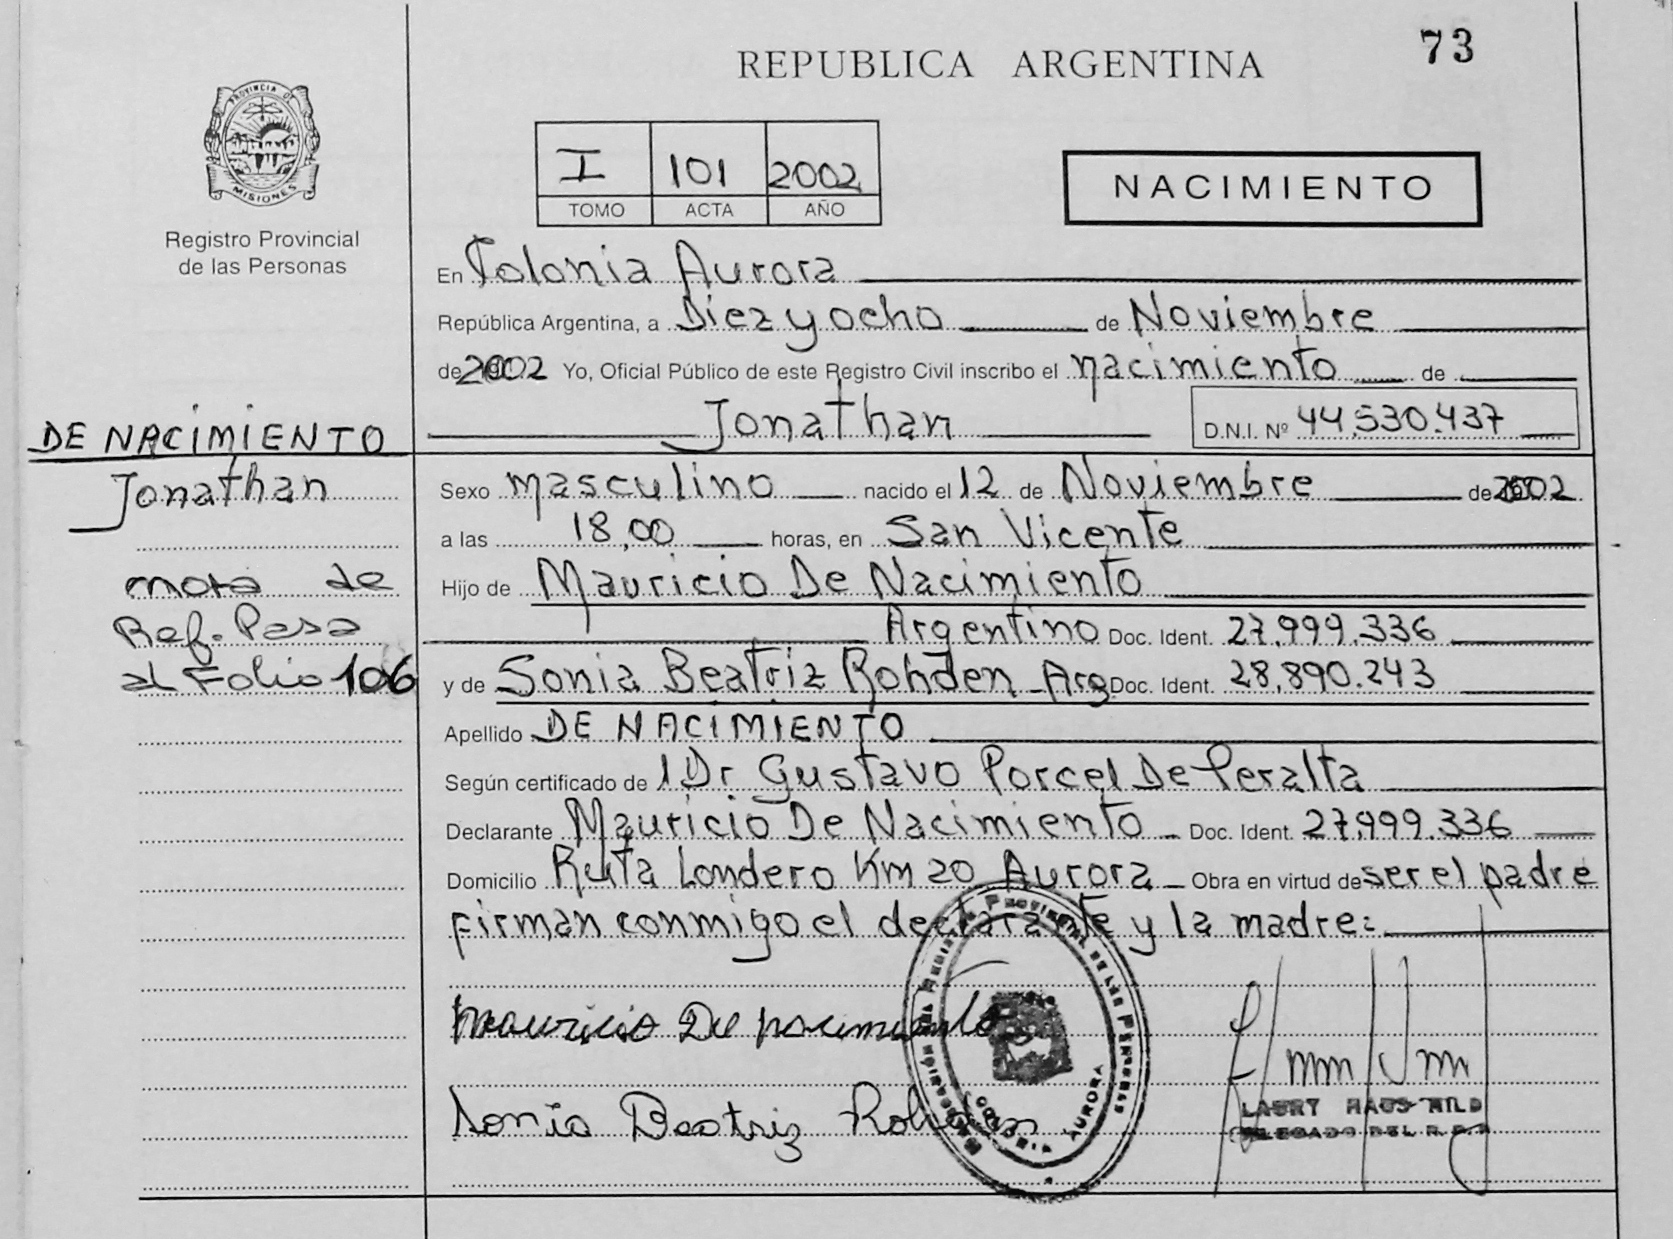 73
REPUBLICA ARGENTINA
PROVINCIA DE
MISIONES
Registro Provincial
de las Personas
I 101 2002
TOMO ACTA AÑO
NACIMIENTO
En Colonia Aurora
República Argentina, a Diez y ocho de Noviembre
de 2002 Yo, Oficial Público de este Registro Civil inscribo el nacimiento de
Jonathan D.N.I. Nº 44.530.437
DE NACIMIENTO
Jonathan
nota de
Ref. Pasa
al Folio 106
Sexo masculino nacido el 12 de Noviembre de 2002
a las 18,00 horas, en San Vicente
Hijo de Mauricio De Nacimiento
Argentino Doc. Ident. 27.999.336
y de Sonia Beatriz Rohden Arg Doc. Ident. 28.890.243
Apellido DE NACIMIENTO
Según certificado de 1 Dr. Gustavo Porcel De Peralta
Declarante Mauricio De Nacimiento Doc. Ident. 27.999.336
Domicilio Ruta Londero Km 20 Aurora Obra en virtud de ser el padre
firman conmigo el declarante y la madre:
Mauricio De nacimiento
Sonia Beatriz Rohden
PROVINCIAL DE LAS PERSONAS
COLONIA AURORA
DELEGADO DEL R.P.P